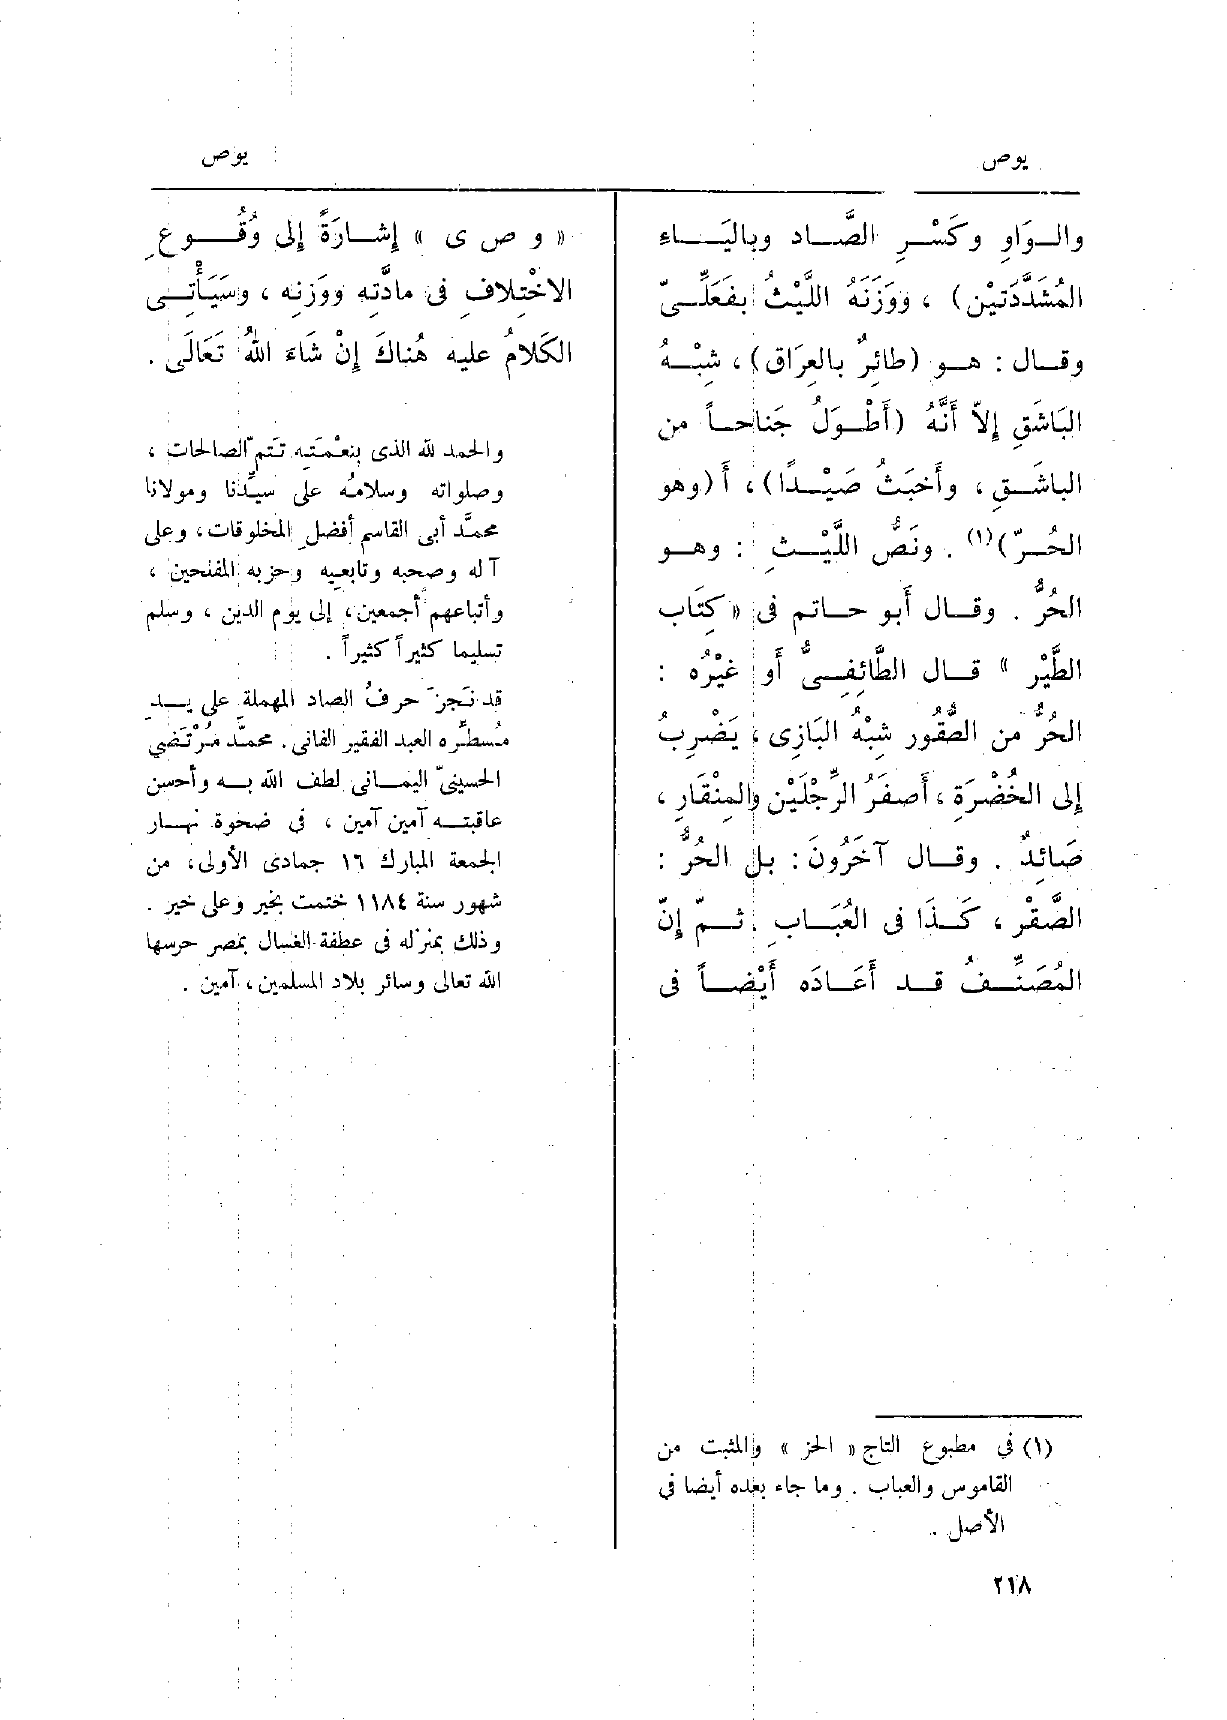 يوص
يوص
والـوَاوِ وكَسْـرِ الصَّـاد وبـاليَـاءِ
المُشَدَّدَتيْن) ، ووَزَنَهُ اللَّيْثُ بفَعَلِّـىّ
وقـال : هـو (طائِرٌ بالعِرَاق) ، شِبْـهُ
البَاشَقِ إلاّ أَنَّهُ (أَطْـوَلُ جَناحـاً من
الباشَـقِ ، وأَخبَثُ صَيْـدًا) ، أَ(وهو
الحُـرّ)(١) . ونَصُّ اللَّيْـثِ : وهـو
الحُرُّ . وقـال أَبو حـاتم فى « كِتَاب
الطَّيْر » قـال الطَّائِفِـىُّ أَو غيْرُه :
الحُرُّ من الصُّقُور شِبْهُ البَازِى ، يَضْرِبُ
إِلى الخُضْرَةِ ، أَصفَرُ الرِّجْلَيْن والمِنْقَارِ ،
صَائِدٌ . وقـال آخَرُونَ : بل الحُرُّ :
الصَّقْر ، كَـذَا فى العُبَـابِ . ثـمّ إِنّ
المُصَنِّـفُ قـد أَعَـادَه أَيْضـاً فى
« و ص ى » إِشـارَةً إِلى وُقُـوعِ
الاخْتِلافِ فى مادَّتِه ووَزنِه ، وسَيَأْتِـى
الكَلامُ عليه هُناكَ إِنْ شَاءَ اللهُ تَعَالَى .
والحمد لله الذى بِنعْمَتِه تَتمّ الصالحات ،
وصلواته وسلامُه على سيِّدنا ومولانا
محمَّد أبى القاسم أفضلِ المخلوقات ، وعلى
آله وصحبه وتابعيه وحزبه المفلحين ،
وأتباعهم أجمعين ، إلى يوم الدين ، وسلم
تسليما كثيراً كثيراً .
قد نَجزَ حرفُ الصاد المهملة على يـدِ
مُسطِّره العبد الفقير الفانى . محمَّد مُرْتَضي
الحسينىّ اليمانى لطف الله بـه وأحسن
عاقبتـه آمين آمين ، فى ضحوة نهـار
الجمعة المبارك ١٦ جمادى الأولى ، من
شهور سنة ١١٨٤ ختمت بخير وعلى خير .
وذلك بمنزله فى عطفة الغسال بمصر حرسها
الله تعالى وسائر بلاد المسلمين ، آمين .
(١) في مطبوع التاج « الحز » والمثبت من
القاموس والعباب . وما جاء بعده أيضا في
الأصل .
٢١٨